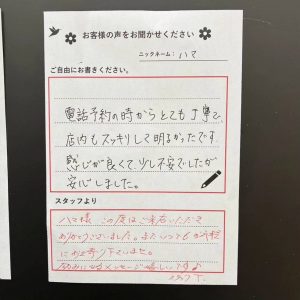 お客様の声をお聞かせください
ニックネーム: ハマ
ご自由にお書きください。
電話予約の時からとても丁寧で、
店内もスッキリして明るかったです
感じが良くて、少し不安でしたが
安心しました。
スタッフより
ハマ様 この度はご来店いただき
ありがとうございました。またいつでもお気軽
にお立寄り下さいませ。
メッセージ嬉しいです♪